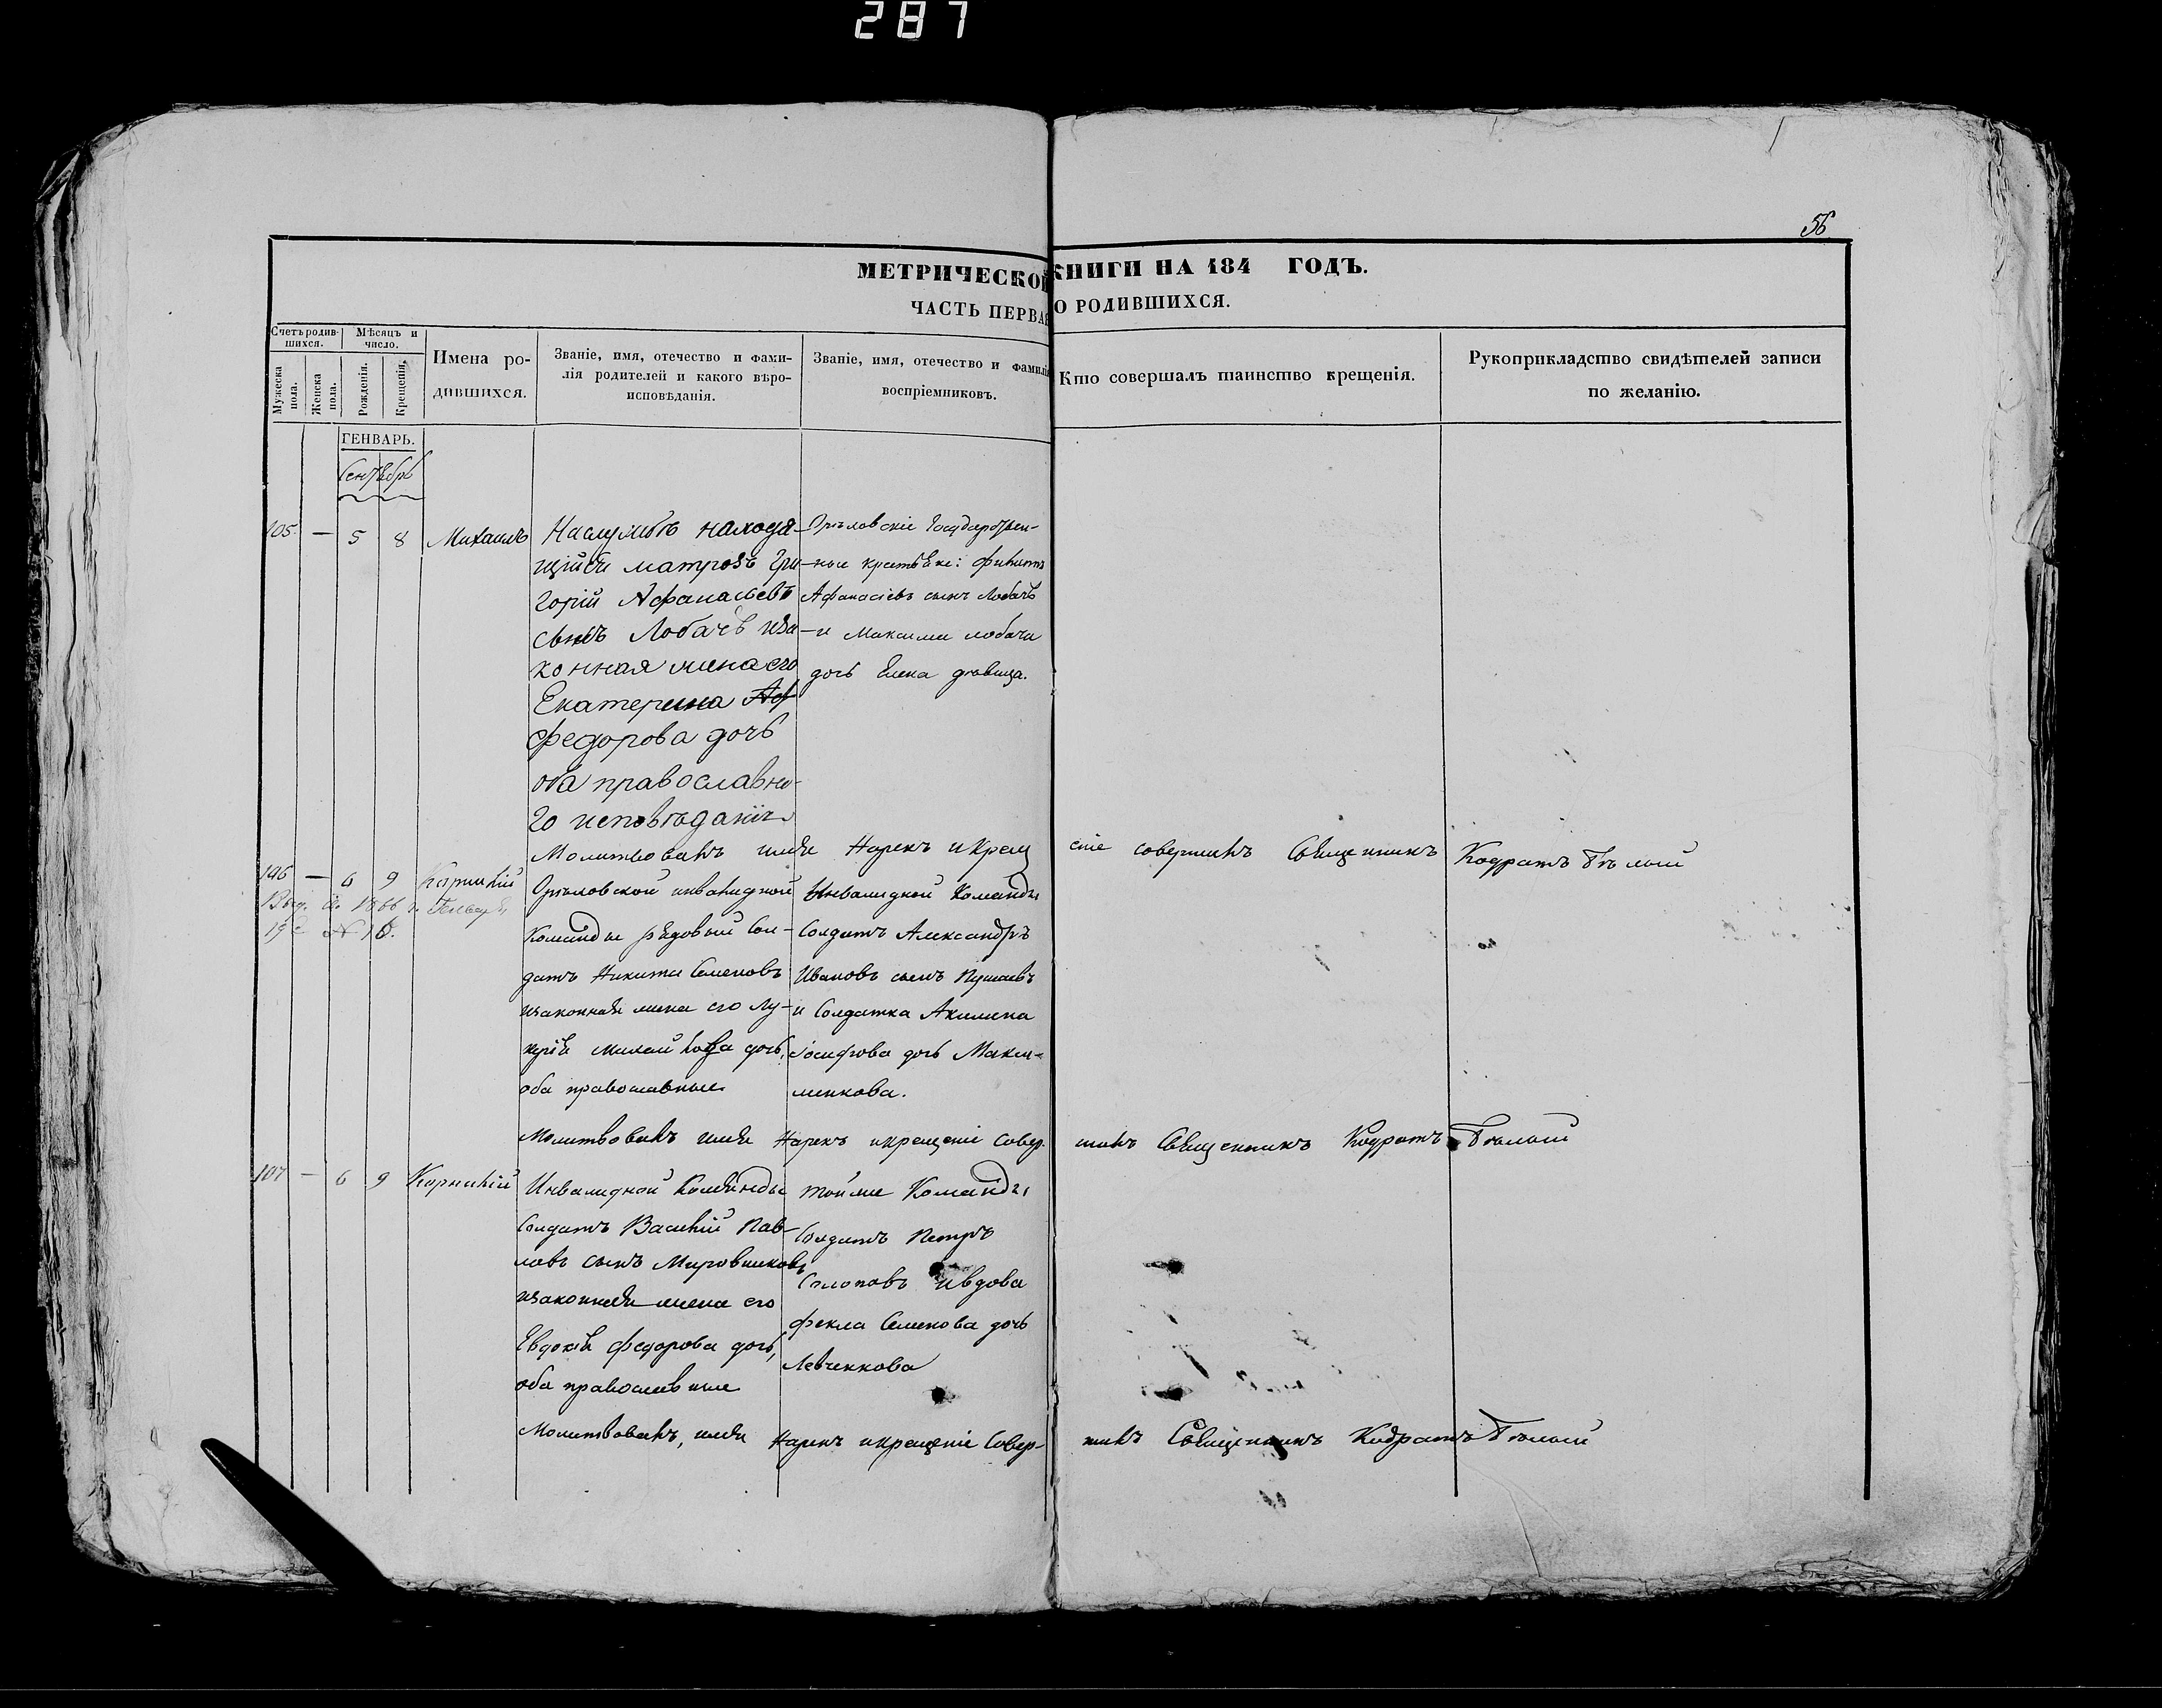 287
56
МЕТРИЧЕСКОЙ КНИГИ НА 184 ГОДЪ.
ЧАСТЬ ПЕРВАЯ О РОДИВШИХСЯ.
Счетъ родив-
шихся.
Мужеска
пола.
Женска
пола.
Мѣсяцъ и
число.
Рожденія.
Крещенія.
Имена ро-
дившихся.
Званіе, имя, отечество и фами-
лія родителей и какого вѣро-
исповѣданія.
Званіе, имя, отечество и фамилія
воспріемниковъ.
Кто совершалъ таинство крещенія.
Рукоприкладство свидѣтелей записи
по желанію.
ГЕНВАРЬ.
Сентябрь
105. — 5 8 Михаилъ
Наслужбѣ находя-
щійся матрозъ Гри
горій Афанасьевъ
сынъ Лобачъ иза
конная жена его
Екатерина Аф
Федорова дочь
оба православно-
го исповѣданія
Орѣловскіе Государствен-
ные крестьяне: Филиппъ
Афанасіевъ сынъ Лобачъ
и Максима Лобача
дочь Елена дѣвица.
Молитвовалъ имя Нарекъ и крещеніе совершилъ Священникъ Кодратъ Бѣлый
106 — 6 9 Корнилій
Выд. 1866 г. Генваря
19 № 16.
Орѣловской инвалидной
Команды рядовый Сол-
датъ Никита Семеновъ
изаконная жена его Лу-
керія дочь,
оба православные
Инвалидной Команды
Солдатъ Александръ
Ивановъ сынъ
и Солдатка Акилина
Іосифова дочь Макси-
менкова.
Молитвовалъ имя Нарекъ и крещеніе Совер-
шилъ Священникъ Кодратъ Бѣлый
107 — 6 9 Корнилій
Инвалидной Команды
Солдатъ Василій Пав-
ловъ сынъ Мировщиковъ
изаконная жена его
Евдокія Федорова дочь,
оба православные
той же Команды
Солдатъ Петръ
Солоповъ и вдова
Фекла Семенова дочь
Левченкова
Молитвовалъ, имя Нарекъ и крещеніе Совер-
шилъ Священникъ Кодратъ Бѣлый